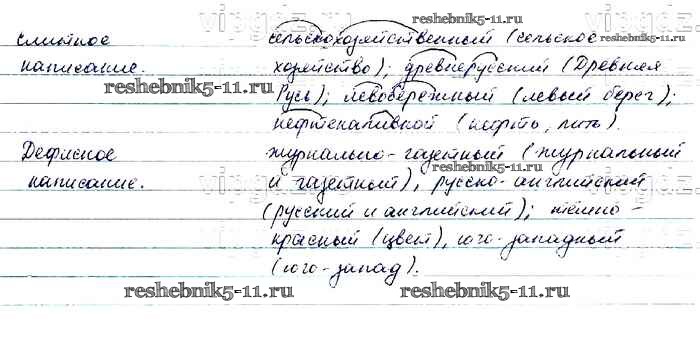 слитное сельскохозяйственный (сельское
написание. хозяйство); древнерусский (Древняя
reshebnik5-11.ru
Русь); левобережный (левый берег);
нефтеналивной (нефть, лить).
Дефисное журнально-газетный (журнальный
написание. и газетный), русско-английский
(русский и английский); тёмно-
красный (цвет), юго-западный
(юго-запад).
reshebnik5-11.ru reshebnik5-11.ru